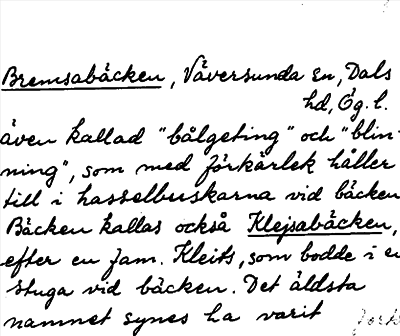 Bremsabäcken, Väversunda sn, Dals
hd, Ög. l.
även kallad "bålgeting" och "blin-
ning", som med förkärlek håller
till i hasselbuskarna vid bäcken
Bäcken kallas också Klejsabäcken,
efter en fam. Kleits, som bodde i en
stuga vid bäcken. Det äldsta
namnet synes ha varit